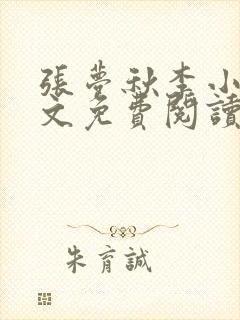 張夢秋李小
文免費閱讀
朱育誠